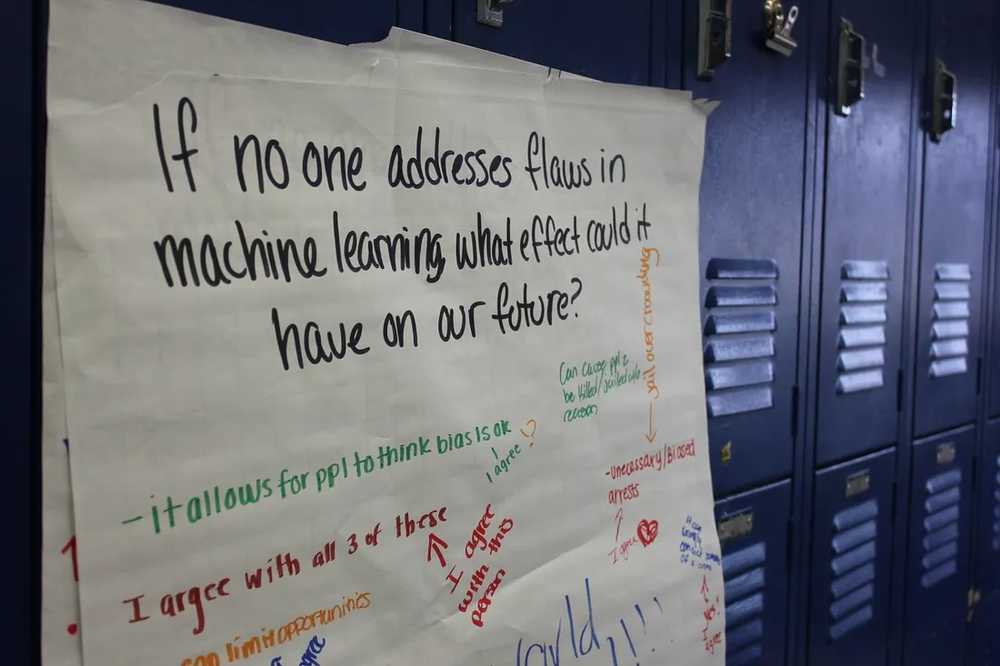 If no one addresses flaws in
machine learning, what effect could it
have on our future?
jail over crowding
Can cause ppl 2
be killed/jailed w/o
reason
-it allows for ppl to think bias is ok
I agree
-unecessary/Biased
arrests
I agree
I argee with all 3 of these
I agree
with this
person
can limit opportunities
agree
yes!
I agree